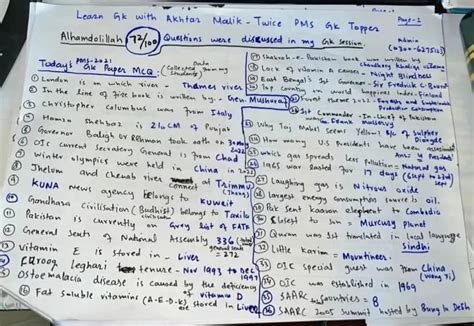 Learn GK with Akhtar Malik - Twice PMS GK Topper
Page-1
Alhamdolillah 72/100 Questions were discussed in my GK session
Admin
Today's PMS-2021 GK Paper MCQ: (Collected from students)
① London is on which river - Thames river
② In the line of fire book is written by - Gen Musharaf
③ Christopher columbus was from Italy
④ Hamza Shehbaz is 21 CM of Punjab
⑤ Governor Baligh Ur Rehman took oath on 30 May 2022
⑥ OIC current secretary General is from Chad
⑦ Winter olympics were held in China in 2022
⑧ Jhelum and Chenab rivers connect at Trimmu (Jhang)
⑨ KUNA news agency belongs to Kuwait
⑩ Gandhara Civilisation (Budhist) belongs to Taxila
⑪ Pakistan is currently on Grey List of FATF
⑫ General seats of National Assembly 336 (total) general seats = 272
⑬ Vitamin E is stored in - Liver
Farooq leghari tenuse - Nov 1993 to Dec
Osteomalacia disease is caused by the deficiency of vitamin D
⑯ Fat soluble vitamins (A-E-D-K) are stored in Liver
Shahab-e-Pakistan book was written by -
Chaudhry Khaliq uz Zama
lack of vitamin A causes - Night Blindness
East Bengal's 1st Governor - Sir Fredrick C Bourne
Top country in world happiest Index - Finland
Forest theme 2022 - Forests and Sustainable Production Consumption
1st Commander-In-Chief of Pakistan was, Frank Musservy
Why Taj Mahal seems Yellow? B/c of Sulpher Dioxide
How many US Presidents have been assassinated
which gas spreads less pollution - Natural gas
1965 war lasted for 17 days (6 Sept to 23rd Sept)
Laughing gas is Nitrous oxide
largest energy consumption source is oil
Closest to sun = Mercury planet
Quran was 1st translated in local language Sindhi
little karim = Mountineer.
OIC special guest was from China (Wang Yi)
OIC was established in 1969
SAARC countries = 8
SAARC 2005 summit hosted by